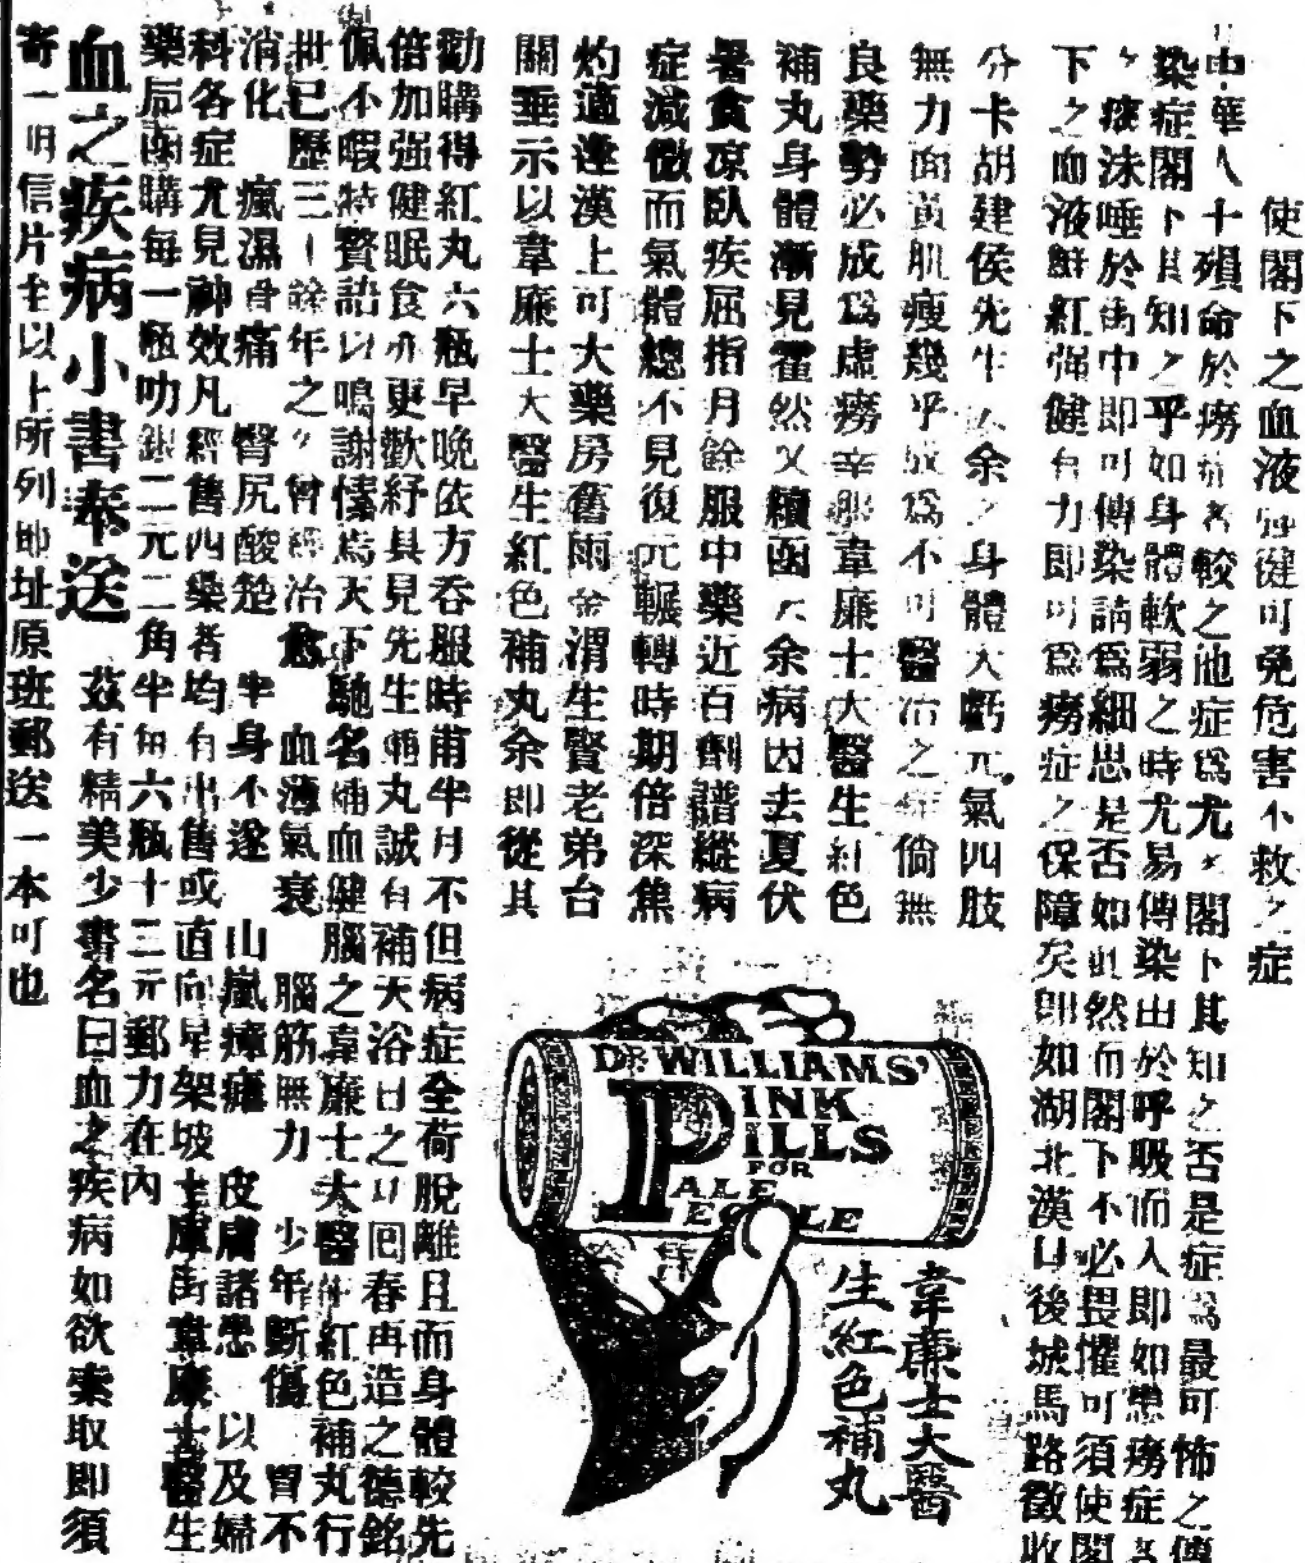 使閣下之血液強健可免危害不救之症
中華人十殞命於癆病者較之他症為尤多閣下其知之否是症為最可怖之傳
染症閣下其知之乎如身體軟弱之時尤易傳染由於呼吸而入即如患癆症者
痰沫唾於街中即可傳染請為細思是否如此然而閣下不必畏懼可須使閣
下之血液鮮紅強健有力即可為癆症之保障矣即如湖北漢口後城馬路徵收
分卡胡建侯先生云余之身體大虧元氣四肢
無力面黃肌瘦幾乎成為不可醫治之症倘無
良藥勢必成為虛癆幸服韋廉士大醫生紅色
補丸身體漸見霍然又續函云余病因去夏伏
暑貪凉臥疾屈指月餘服中藥近百劑譜縱病
症減微而氣體總不見復元輾轉時期倍深焦
灼適逢漢上可大藥房舊雨金渭生賢老弟台
關垂示以韋廉士大醫生紅色補丸余即從其
勸購得紅丸六瓶早晚依方吞服時甫半月不但病症全荷脫離且而身體較先
倍加强健眠食亦更歡紓具見先生補丸誠有補天浴日之以囘春再造之德銘
佩不暇特贅語以鳴謝悃焉天下馳名補血健腦之韋廉士大醫生紅色補丸行
世已歷三十餘年之久曾經治愈 血薄氣衰 腦筋無力 少年斷傷 胃不
消化 瘋濕骨痛 臀尻酸楚 半身不遂 山嵐瘴瘧 皮膚諸患 以及婦
科各症尤見神效凡經售西藥者均有出售或直向星架坡土庫街韋廉士醫生
藥局函購每一瓶叻銀二元二角半每六瓶十二元郵力在內
血之疾病小書奉送 茲有精美少書名曰血之疾病如欲索取即須
寄一明信片至以上所列地址原班郵送一本可也
DR WILLIAMS'
PINK
PILLS
FOR
PALE
PEOPLE
韋廉士大醫
生紅色補丸